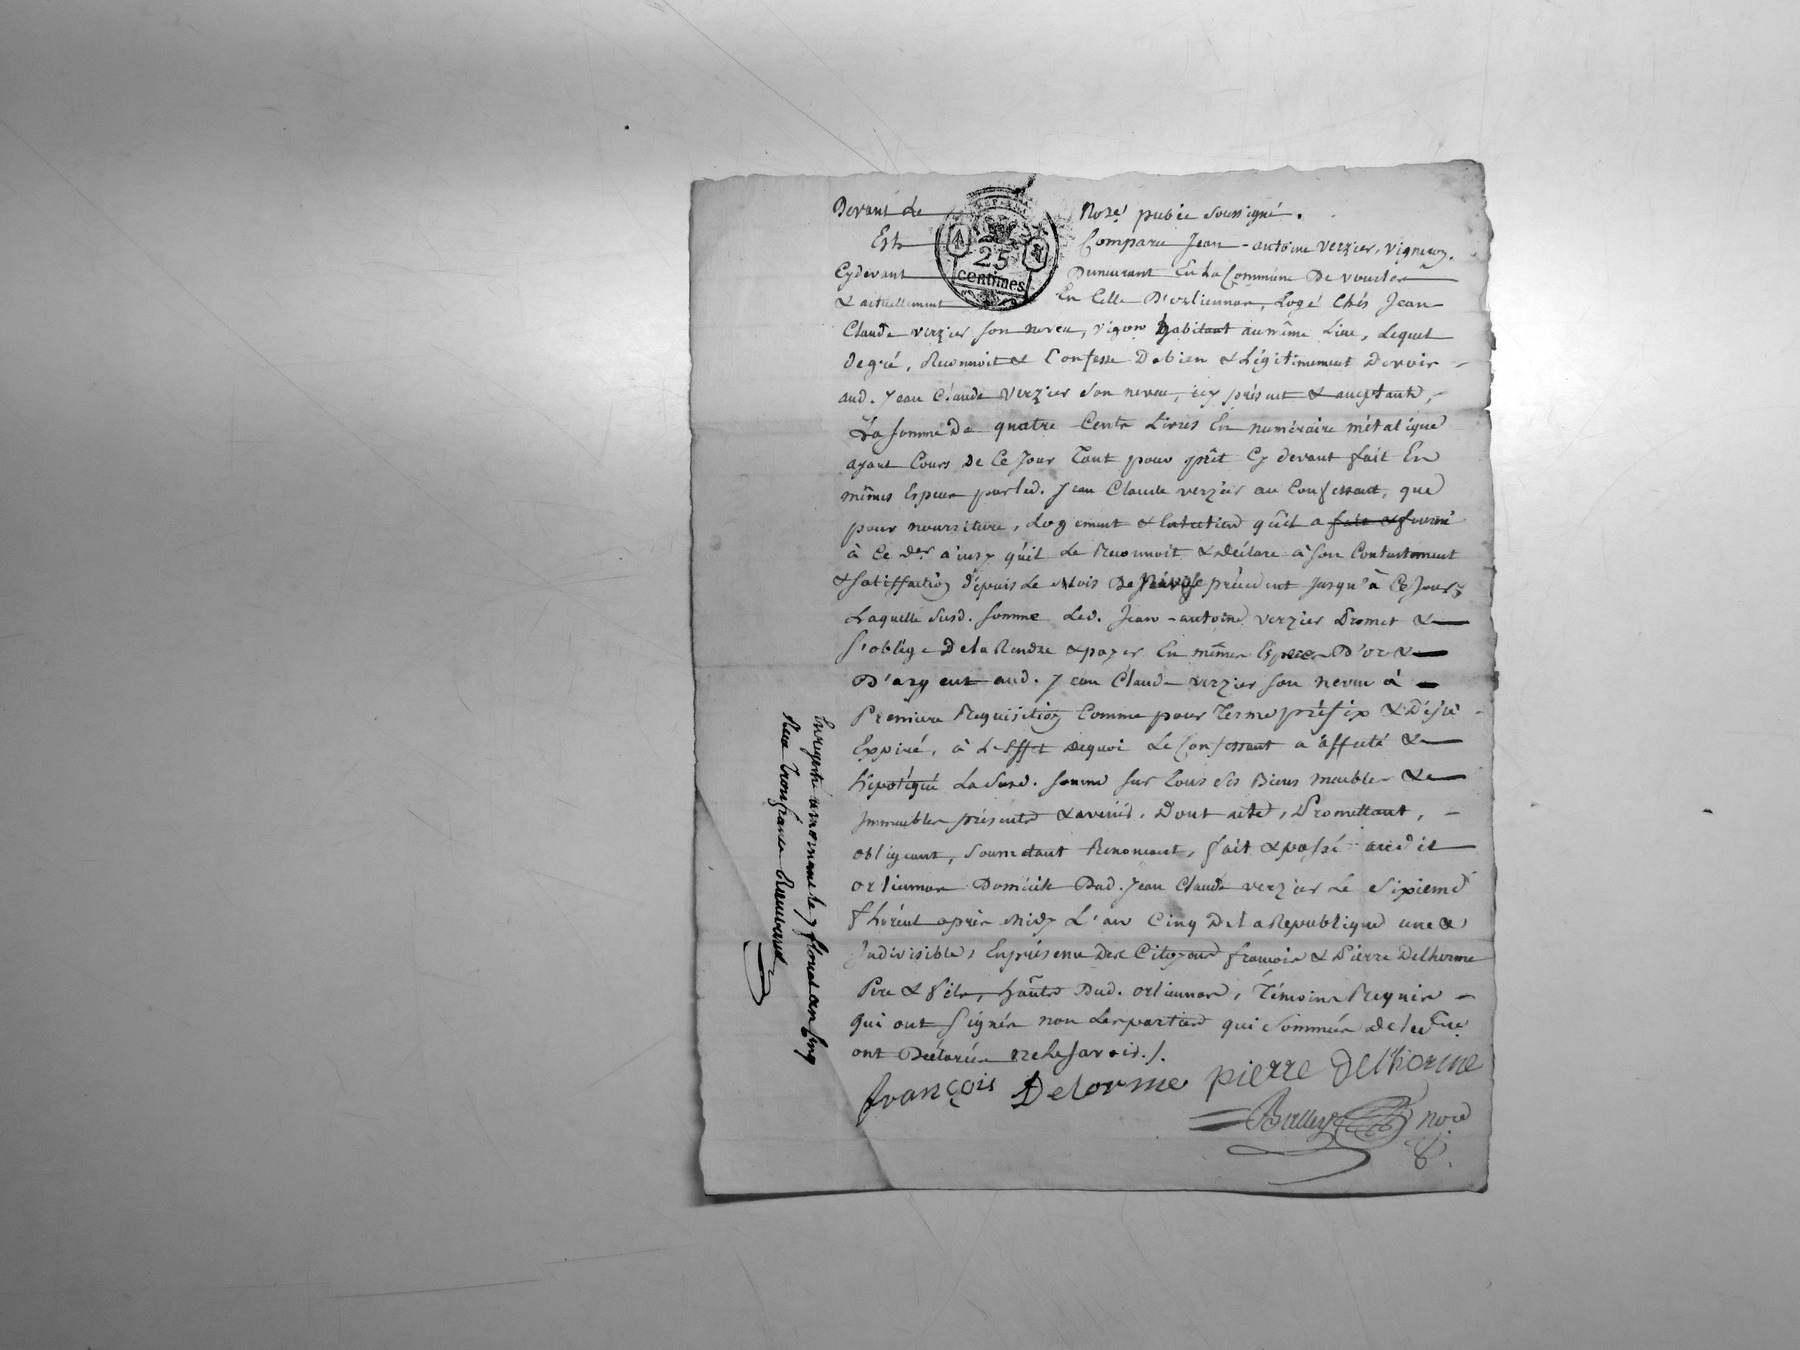 Devant Le Nore. public soussigné.
Est Comparu Jean-antoine Verzier, vigneron,
Cydevant Demeurant En La Commune De vourles
& actuellement En Celle D'orliennas, Logé Chés Jean
Claude verzier son neveu, vigon habitant au même Lieu, Lequel
de gré, Reconnoit & Confesse De bien & Légitimement Devoir
aud. Jean Claude Verzier son neveu, icy présent & acceptant,
La somme De quatre Cents Livres En numéraire métalique
ayant Cours De Ce Jour Tant pour prêt Cy devant fait En
mêmes Espèces par led. Jean Claude verzier au Confessant, que
pour nourriture, Logement & Entretien qu'il a fait & fourni
à Ce Der ainsy qu'il Le Reconnoit & déclare à son Contentement
& satisfaction depuis Le Mois De Nivose précédent jusqu'à Ce Jour,
Laquelle susd. somme Led. Jean-antoine verzier Promet &
s'oblige De la Rendre & payer En mêmes Espèces D'or &
D'argent aud. Jean Claude verzier son neveu à
Première Requisition Comme pour Terme préfix & Déjà
Expiré, à L'Effet dequoi Le Confessant a affecté &
hipotéqué La Susd. somme sur tous ses Biens meubles &
Immeubles présents & avenir. Dont acte, Promettant,
obligeant, Soumetant Renonçant, fait & passé audit
orliennas Domicile Dud. Jean Claude verzier Le Sixieme
floréal après midy L'an Cinq De la République une &
Indivisible, En présence Des Citoyens françois & Pierre Delhorme
Père & fils, hants Dud. orliennas, Témoins Requis
qui ont signés non Les parties qui Sommées De Le fre
ont Déclarées ne Le savoir./.
françois Delorme pierre Delhorme
Nore
Enregistré à mornant le 7 floreal an Cinq
Reçu trois francs